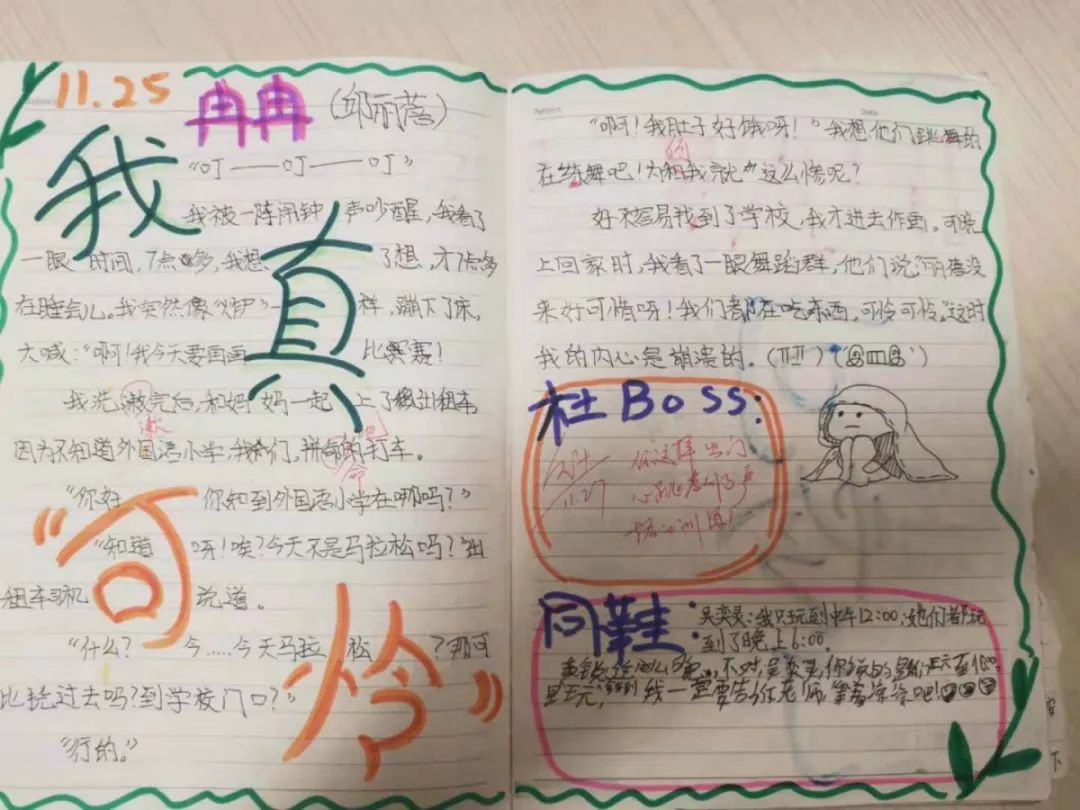 11.25
冉冉（邱丽蓓）
我真“可怜”
“叮——叮——叮”
我被一阵闹钟声吵醒，我看了
一眼时间，7点多，我想了想，才7点多
在睡会儿。我突然像“炉”一样，蹦下了床，
大喊：“啊！我今天要画画比赛赛！
我洗漱完后，和妈妈一起上了出租车，
因为不知道外国语小学，我们，拼命的打车。
“你好 你知到外国语小学在哪吗？”
“知道呀！唉？今天不是马拉松吗？”出
租车司机说道。
“什么？今……今天马拉松？那可
比挠过去吗？到学校门口？”
“行的。”
“啊！我肚子好饿呀！”我想他们跳舞的
在练舞吧！怕和我就“这么惨呢？
好不容易找到了学校，我才进去作画。可晚
上回家时，我看了一眼舞蹈群，他们说丽蓓没
来好可惜呀！我们都在吃东西，可怜可怜。”这时
我的内心是崩溃的。
杜Boss：
11.27
你这样出门
同鞋：
吴奕灵：我只玩到中午12:00，她们都玩
到了晚上6:00。
不对，吴奕灵，你
我一定要告
老师，等着
吧！